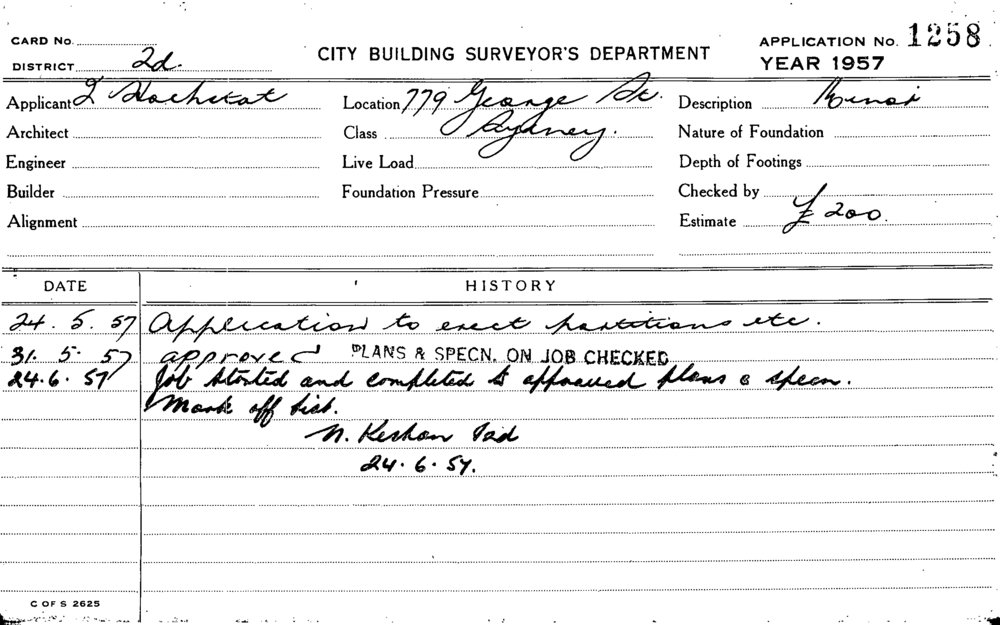 CARD No.
DISTRICT 2d.
CITY BUILDING SURVEYOR'S DEPARTMENT
APPLICATION No. 1258
YEAR 1957
Applicant
Location 779 George St.
Description Minor
Architect
Class Sydney.
Nature of Foundation
Engineer
Live Load
Depth of Footings
Builder
Foundation Pressure
Checked by
Alignment
Estimate £ 200.
DATE HISTORY
24. 5. 57 Application to erect partitions etc.
31. 5. 57 approved PLANS & SPECN. ON JOB CHECKED
24.6.57 Job started and completed to approved plans & specn.
Mark off list.
24.6.57.
C OF S 2625